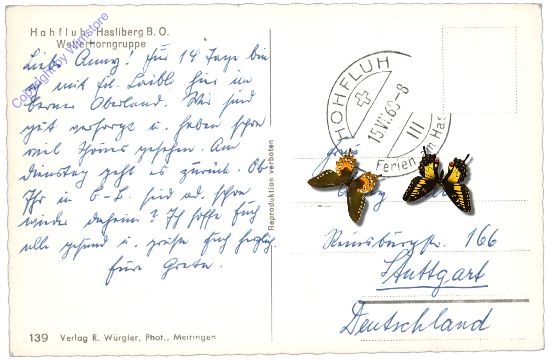 Hohfluh-Hasliberg B.O.
Wetterhorngruppe
Copyright by Wimstore
Liebe Anny! Für 14 Tage bin
ich mit Frl. Laibl hier im
Berner Oberland. Wir sind
gut versorgt u. haben schon
viel Schönes gesehen. Am
Dienstag geht es zurück. Ob
Ihr in B.-L. sind od. schon
wieder daheim? Ich hoffe Euch
alle gesund u. grüße Euch herzlich.
Eure Greta.
139 Verlag R. Würgler, Phot., Meiringen
Reproduktion verboten
HOHFLUH
15.VII.60-8
III
Ferien im Has
Reinsburgstr. 166
Stuttgart
Deutschland